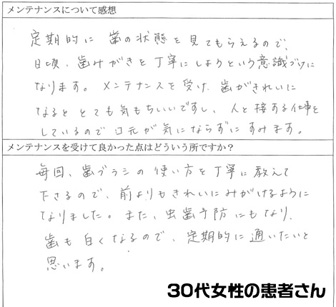 メンテナンスについて感想
定期的に歯の状態を見てもらえるので、
日頃、歯みがきを丁寧にしようという意識づけに
なります。メンテナンスを受け、歯がきれいに
なるととても気もちいいですし、人と接する仕事を
しているので口元が気にならずにすみます。
メンテナンスを受けて良かった点はどういう所ですか？
毎回、歯ブラシの使い方を丁寧に教えて
下さるので、前よりもきれいにみがけるように
なりました。また、虫歯予防にもなり、
歯も白くなるので、定期的に通いたいと
思います。
30代女性の患者さん